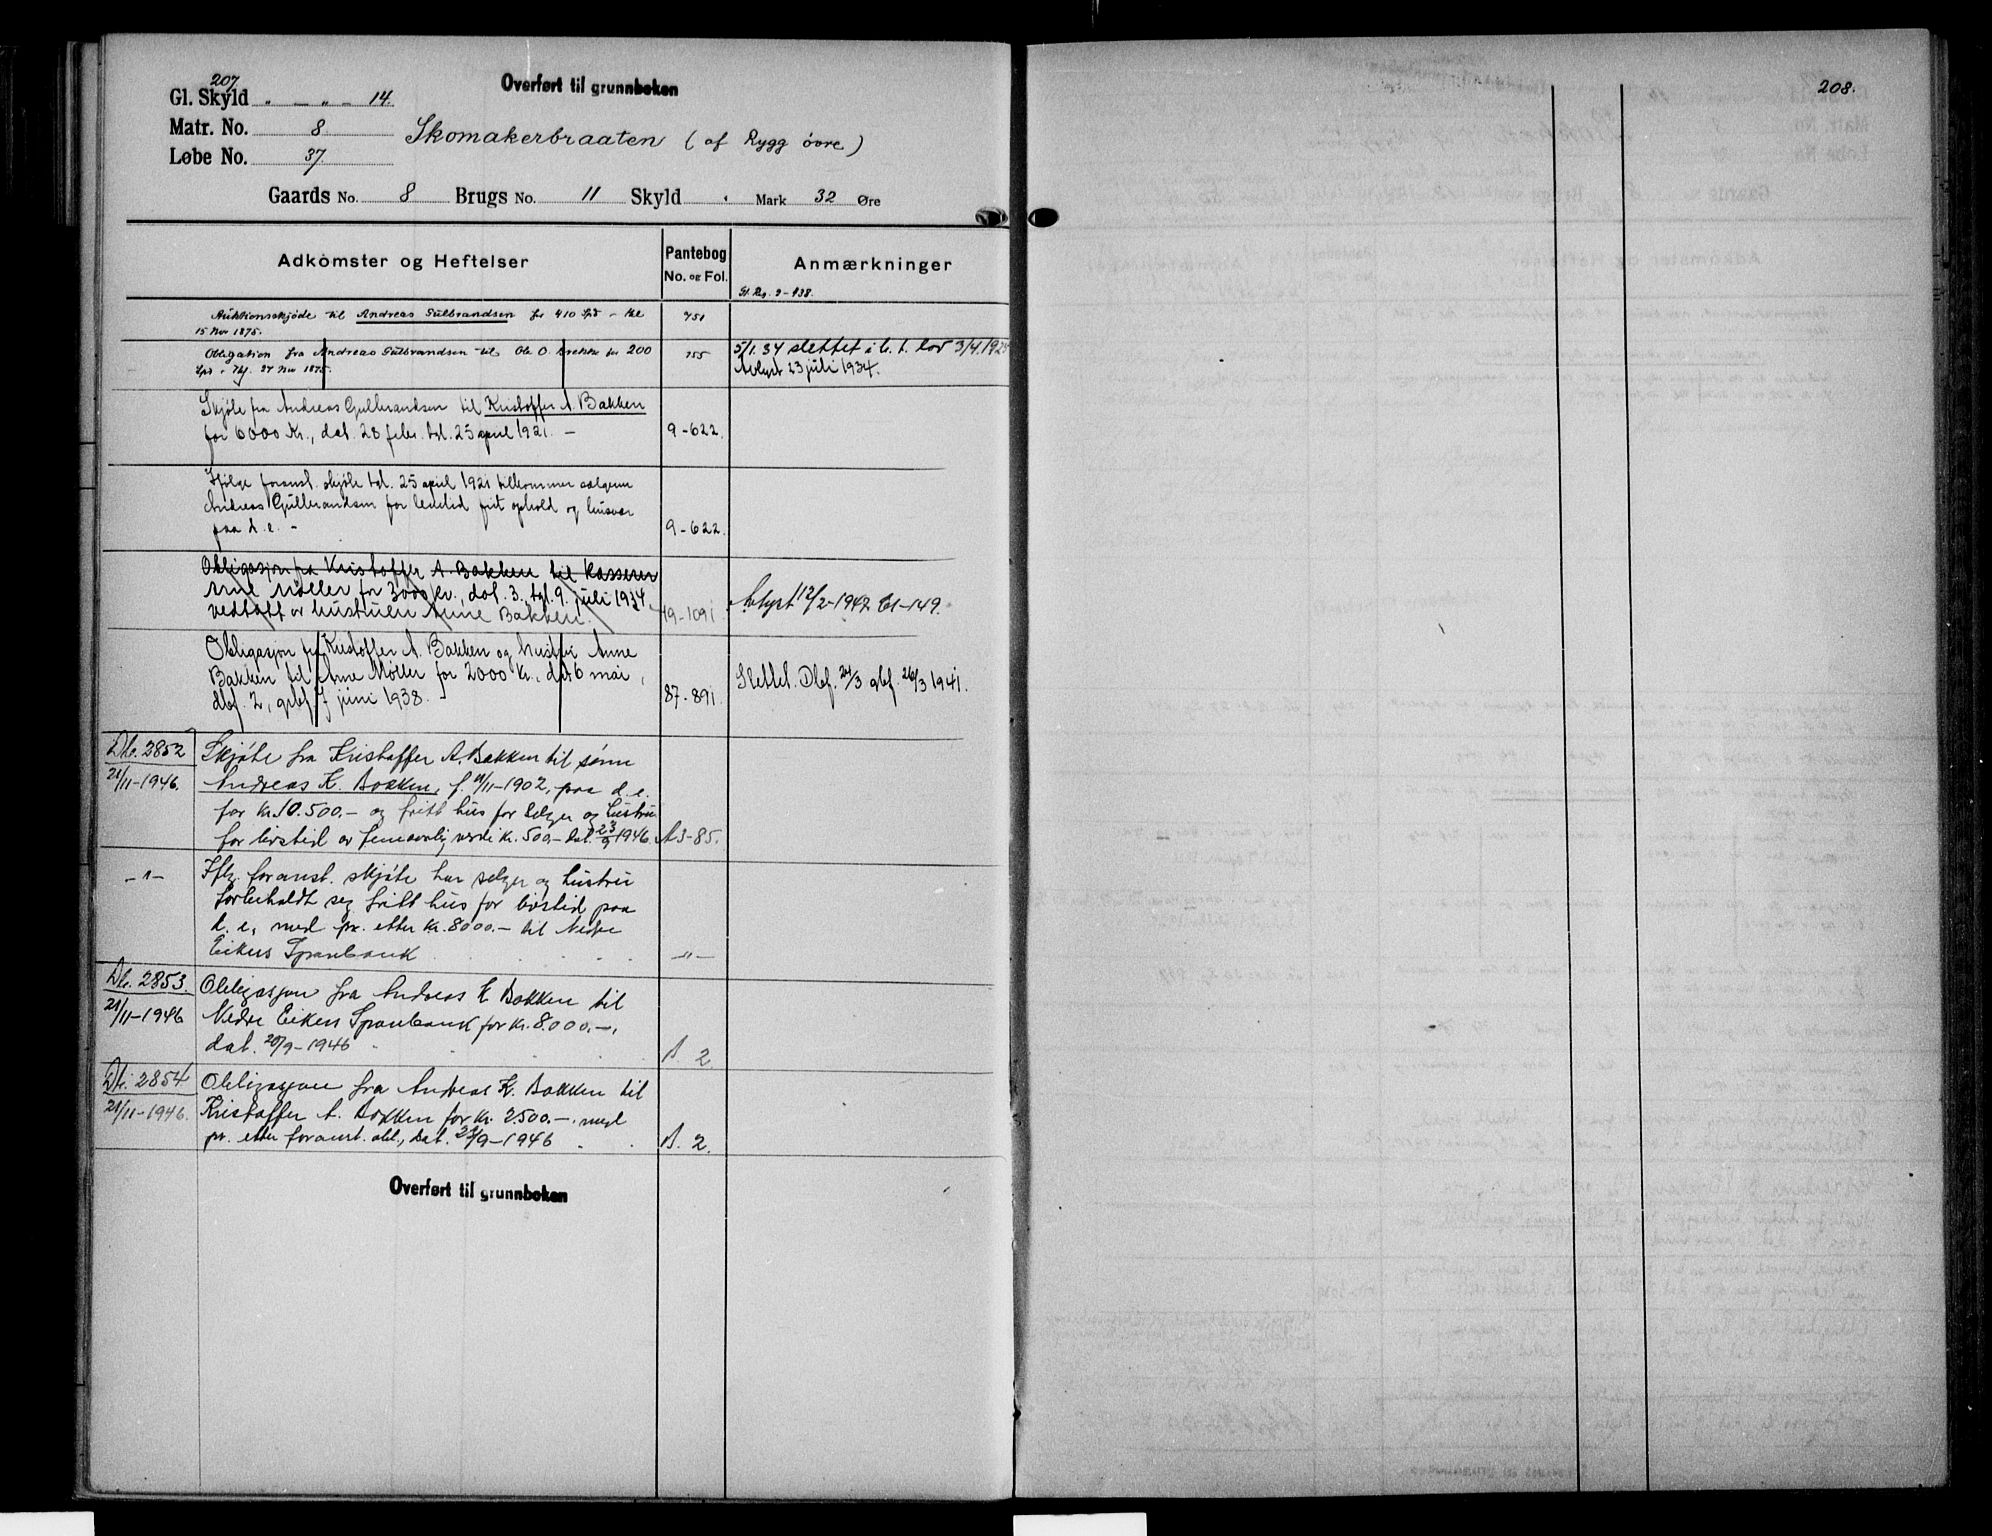 207
Overført til grunnboken
Gl. Skyld " — " — 14.
Matr. No. 8
Skomakerbraaten (af Rygg øvre)
Løbe No. 37.
Gaards No. 8 Brugs No. 11 Skyld , Mark 32 Øre
Adkomster og Heftelser
Pantebog
No. og Fol.
Anmærkninger
Gl. Reg. 9-438.
Auktionsskjøde til Andreas Gulbrandsen for 410 Spd - thl
15 Nov 1875.
751
Obligation fra Andreas Gulbrandsen til Ole O. Brekke for 200
Spd - Thl. 27 Nov 1875.
755
5/1.34 slettet i h. t. lov 3/4.1925
Avlyst 23 juli 1934.
Skjøte fra Andreas Gulbrandsen til Kristoffer A. Bakken
for 6000 Kr., dat. 28 febr. tgl. 25 april 1921. —
9-622.
Ifølge foranst. skjøte tgl. 25 april 1921 tilkommer sælgeren
Andreas Gulbrandsen for levetid frit ophold og husvær
paa d. e. -
9-622.
Obligasjon fra Kristoffer A. Bakken til Kasserer
Møller for 3000 kr., dat. 3. tgl. 9. juli 1934
vedtatt av hustruen Anne Bakken.
79-1091
Avlyst 12/2-1947 Bl-149.
Obligasjon fra Kristoffer A. Bakken og hustru Anne
Bakken til Arne Møller for 2000 Kr., dat 6 mai,
dbf. 2, grbf 7 juni 1938.
87-891
Slettet. Dbf. 24/3 gbf. 26/3 1941.
Db. 2852
21/11-1946.
Skjøte fra Kristoffer A. Bakken til sønn
Andreas K. Bakken, f. 11/11-1902, paa d. e.
for kr. 10.500.- og fritt hus for selger og hustru
for livstid av femaarlig verdi kr. 500,- dat. 23/9 1946
A3-85.
-"-
Iflg. foranst. skjøte har selger og hustru
forbeholdt seg fritt hus for livstid paa
d. e, med pr. etter kr. 8000.- til Nedre
Eikers Sparebank
-"-
Db. 2853.
21/11-1946
Obligasjon fra Andreas K Bakken til
Nedre Eikers Sparebank for kr. 8.000.-,
dat. 20/9-1946
B 2
Db. 2854
21/11-1946.
Obligasjon fra Andreas K. Bakken til
Kristoffer A. Bakken for kr. 2500.-, med
pr. etter foranst. obl., dat. 23/9-1946
B. 2.
Overført til grunnboken
208.